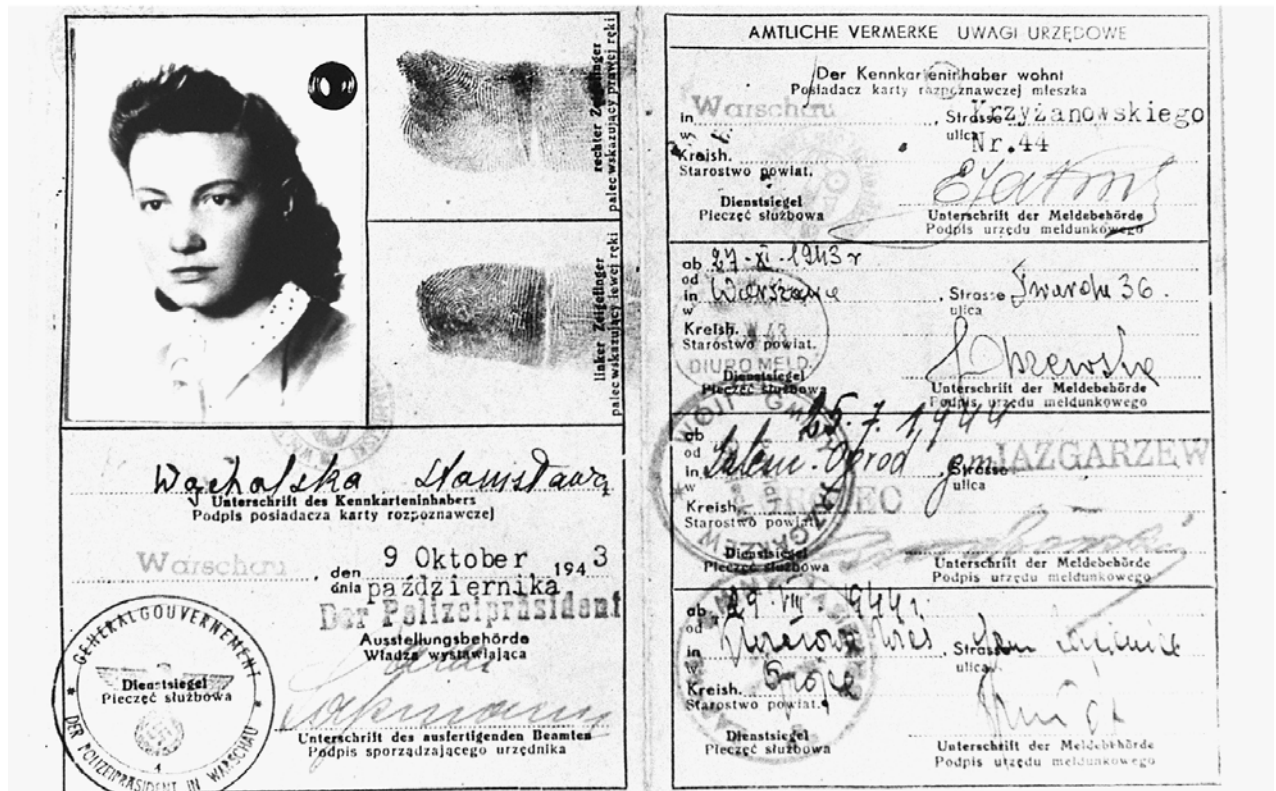 rechter Zeigefinger
palec wskazujący prawej ręki
linker Zeigefinger
palec wskazujący lewej ręki
Wąchalska Stanisława
Unterschrift des Kennkarteninhabers
Podpis posiadacza karty rozpoznawczej
Warschau, den 9 Oktober 1943
dnia października
Der Polizeipräsident
Ausstellungsbehörde
Władza wystawiająca
GENERALGOUVERNEMENT
Dienstsiegel
Pieczęć służbowa
DER POLIZEIPRÄSIDENT IN WARSCHAU
4
Unterschrift des ausfertigenden Beamten
Podpis sporządzającego urzędnika
AMTLICHE VERMERKE UWAGI URZĘDOWE
Der Kennkarteninhaber wohnt
Posiadacz karty rozpoznawczej mieszka
in Warschau, Strasse Krzyżanowskiego
w ulica Nr.44
Kreish.
Starostwo powiat.
Dienstsiegel
Pieczęć służbowa
Unterschrift der Meldebehörde
Podpis urzędu meldunkowego
ab 27-XI-1943 r
od
in Warszawa, Strasse Twarda 36.
w ulica
Kreish.
Starostwo powiat.
BIURO MELD.
Dienstsiegel
Pieczęć służbowa
Unterschrift der Meldebehörde
Podpis urzędu meldunkowego
ab 25.7.1944
od
in Ogród gm JAZGARZEW
w Strasse
ulica
Kreish. GROJEC
Starostwo powiat.
WÓJT GMINY JAZGARZEW
Dienstsiegel
Pieczęć służbowa
Unterschrift der Meldebehörde
Podpis urzędu meldunkowego
ab 29-VIII-1944 r.
od
in, Strasse
w ulica
Kreish. Grójec
Starostwo powiat.
Dienstsiegel
Pieczęć służbowa
Unterschrift der Meldebehörde
Podpis urzędu meldunkowego